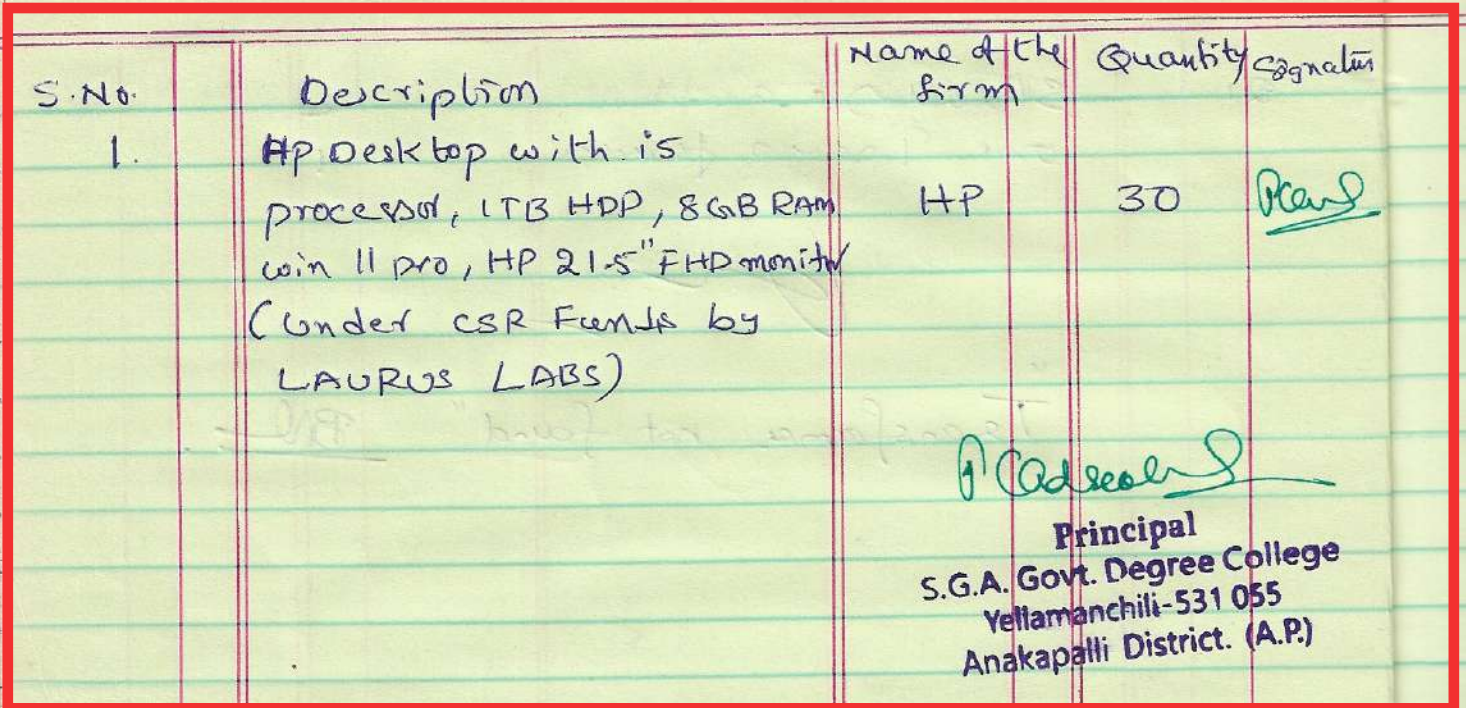 S.No. Description Name of the firm Quantity Signature
1. HP Desktop with i5
processor, 1TB HDD, 8GB RAM HP 30
win 11 pro, HP 21.5" FHD monitor
(Under CSR Funds by
LAURUS LABS)
Principal
S.G.A. Govt. Degree College
Yellamanchili-531 055
Anakapalli District. (A.P.)